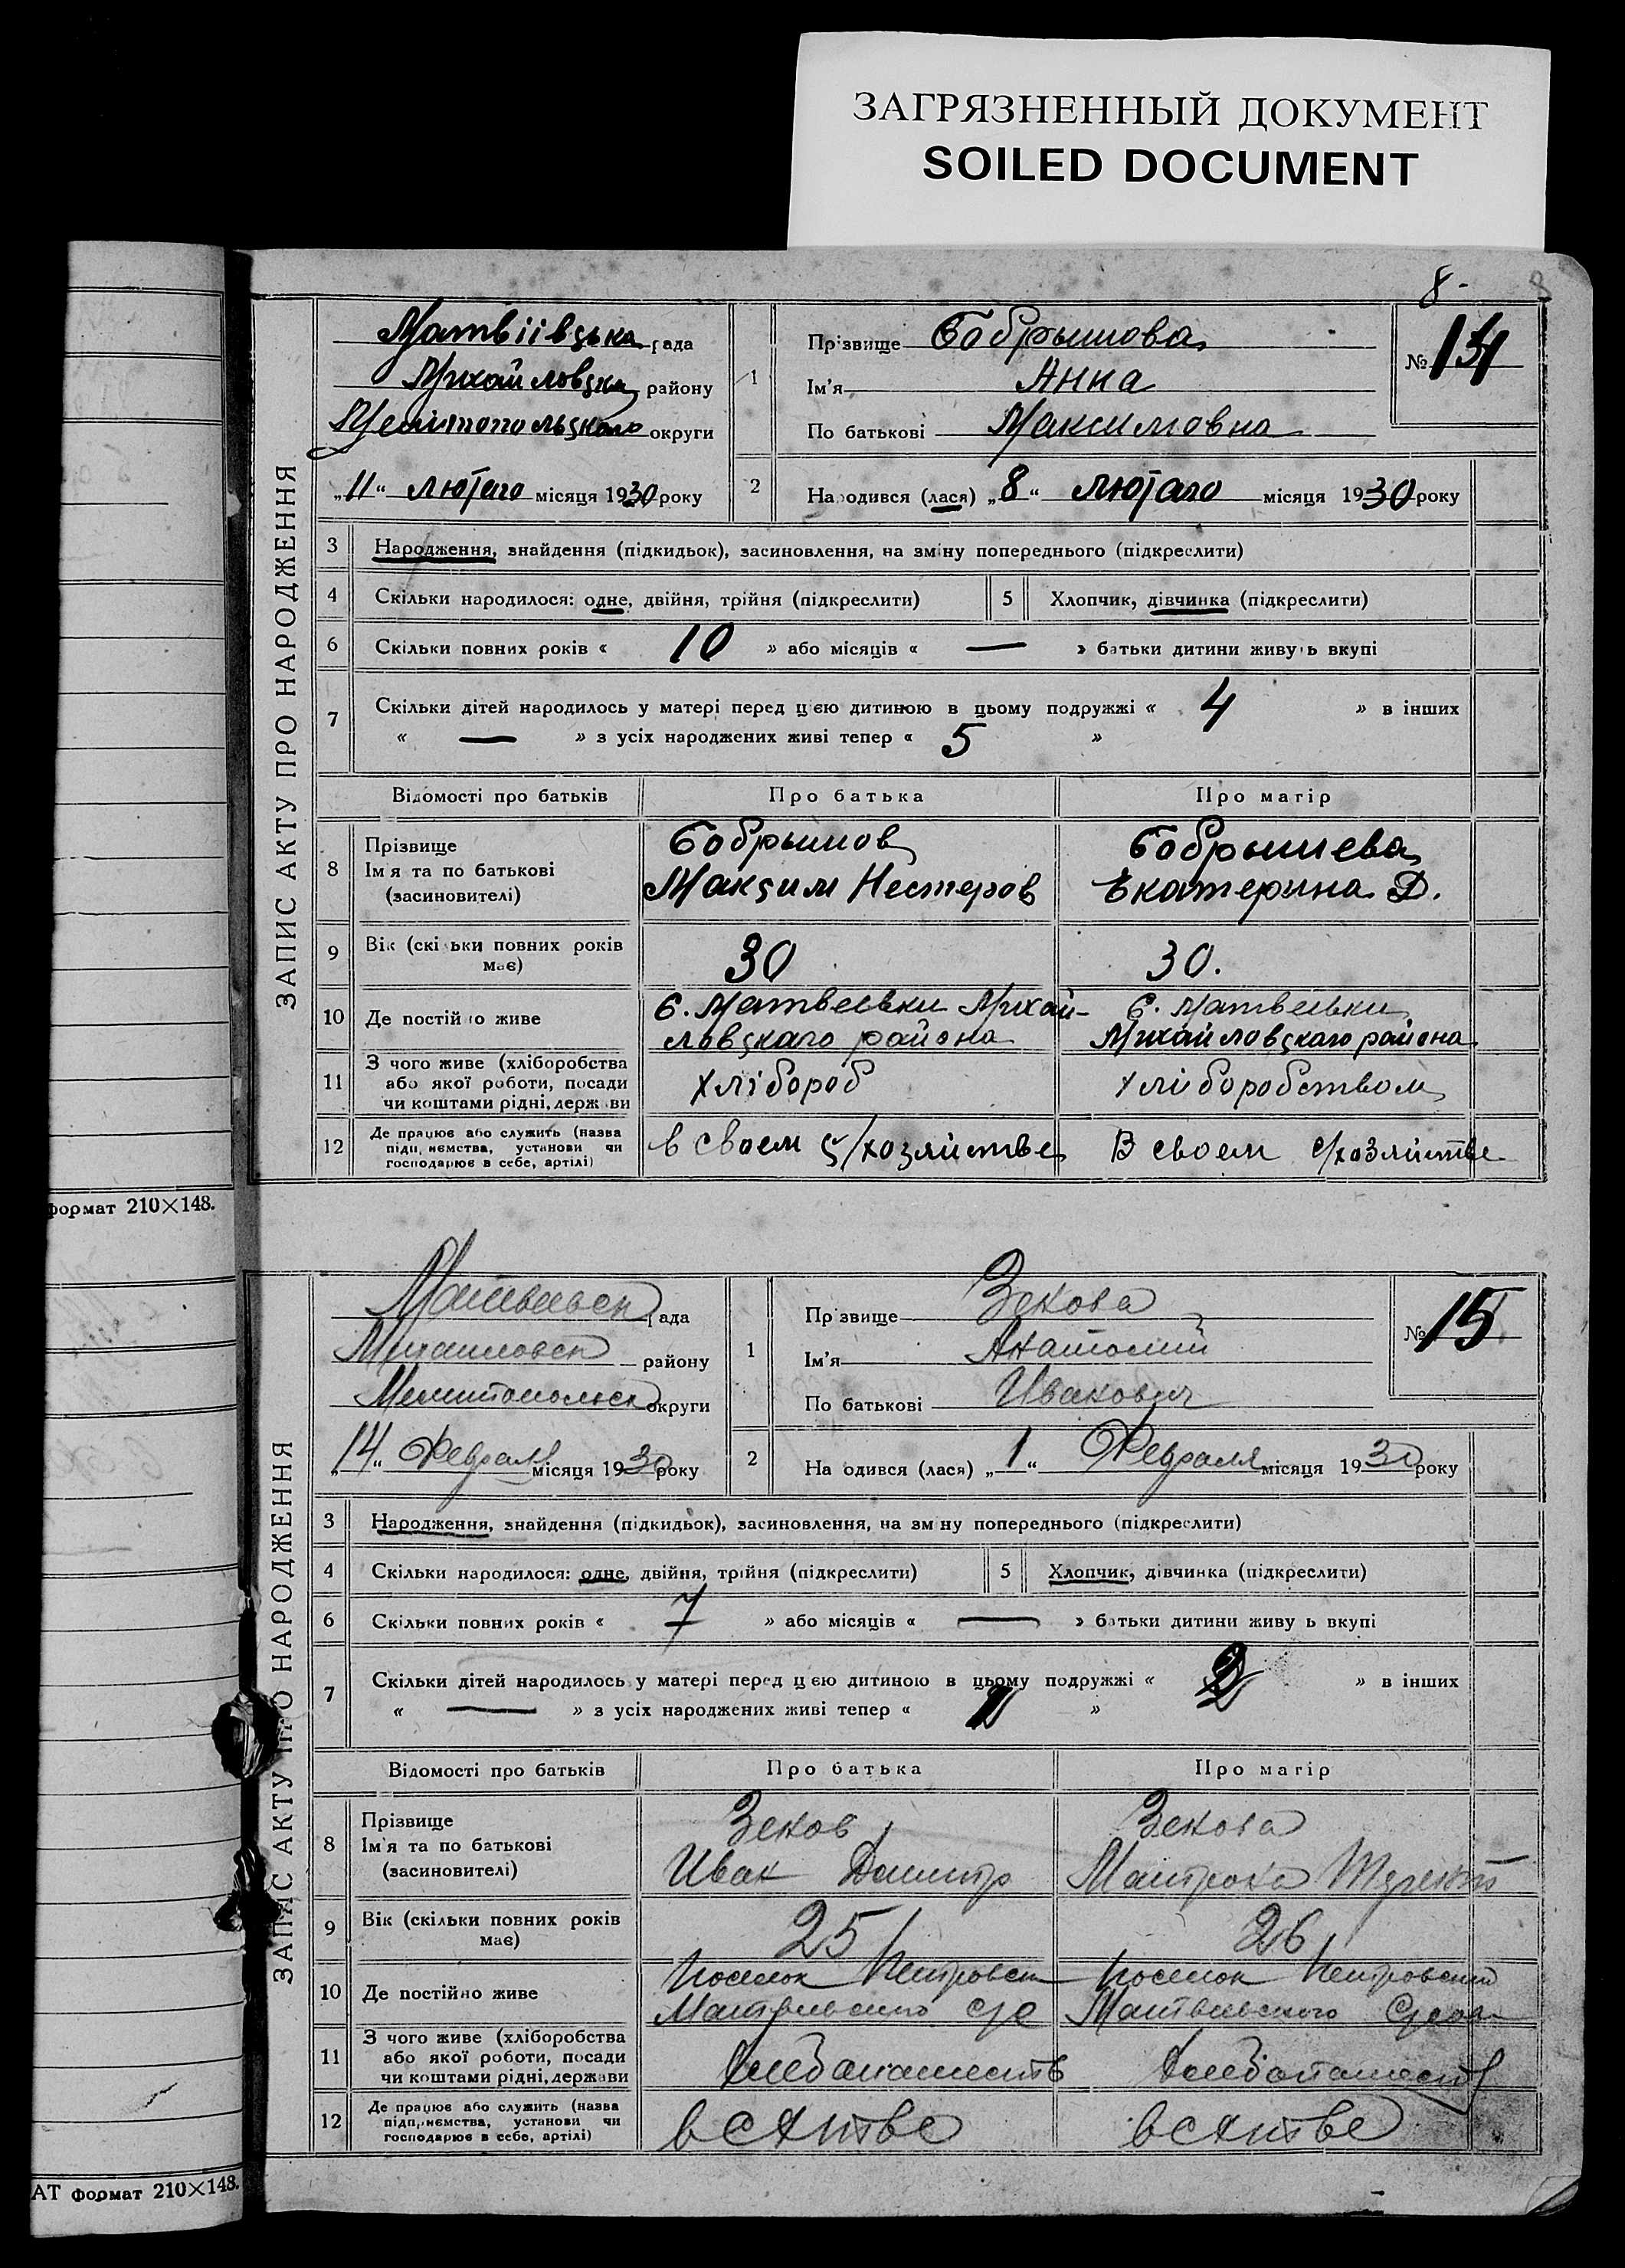 ЗАГРЯЗНЕННЫЙ ДОКУМЕНТ
SOILED DOCUMENT
8- 8
ЗАПИС АКТУ ПРО НАРОДЖЕННЯ
Матвіівська рада
Михайловска району
Мелітопольского округи
„11“ лютаго місяця 1930 року
1
Прізвище Бобрышова
Ім'я Анна
По батькові Максимовна
№ 14
2 Народився (лася) „8“ лютаго місяця 1930 року
3 Народження, знайдення (підкидьок), засиновлення, на зміну попереднього (підкреслити)
4 Скільки народилося: одне, двійня, трійня (підкреслити) 5 Хлопчик, дівчинка (підкреслити)
6 Скільки повних років « 10 » або місяців « — » батьки дитини живуть вкупі
7 Скільки дітей народилось у матері перед цією дитиною в цьому подружжі « 4 » в інших
« — » з усіх народжених живі тепер « 5 »
Відомості про батьків Про батька Про матір
8 Прізвище
Ім'я та по батькові
(засиновителі)
Бобрышов
Максим Нестеров
Бобрышева
Екатерина Д.
9 Вік (скільки повних років
має)
30
30.
10 Де постійно живе
С. Матвеевки Михай-
ловскаго района
С. Матвеевки
Михайловскаго района
11 З чого живе (хліборобства
або якої роботи, посади
чи коштами рідні, держави
Хлібороб
Хліборобством
12 Де працює або служить (назва
підприємства, установи чи
господарює в себе, артілі)
в своем с/хозяйстве
В своем с/хозяйстве
формат 210×148.
ЗАПИС АКТУ ПРО НАРОДЖЕННЯ
Матвеевск рада
Михаиловск району
Мелитопольск округи
„14“ Февраля місяця 1930 року
1
Прізвище Зекова
Ім'я Анатолий
По батькові Иванович
№ 15
2 Народився (лася) „1“ Февраля місяця 1930 року
3 Народження, знайдення (підкидьок), засиновлення, на зміну попереднього (підкреслити)
4 Скільки народилося: одне, двійня, трійня (підкреслити) 5 Хлопчик, дівчинка (підкреслити)
6 Скільки повних років « 7 » або місяців « — » батьки дитини живуть вкупі
7 Скільки дітей народилось у матері перед цією дитиною в цьому подружжі « 2 » в інших
« — » з усіх народжених живі тепер « »
Відомості про батьків Про батька Про матір
8 Прізвище
Ім'я та по батькові
(засиновителі)
Зеков
Иван Дмитр
Зекова
Матрона
9 Вік (скільки повних років
має)
25
26
10 Де постійно живе
Поселок Петровск
Матвеевского с/с
Поселок Петровский
Матвеевского
11 З чого живе (хліборобства
або якої роботи, посади
чи коштами рідні, держави
Хлебопашеств
Хлебопашест
12 Де працює або служить (назва
підприємства, установи чи
господарює в себе, артілі)
в схптве
в схптве
АТ формат 210×148.